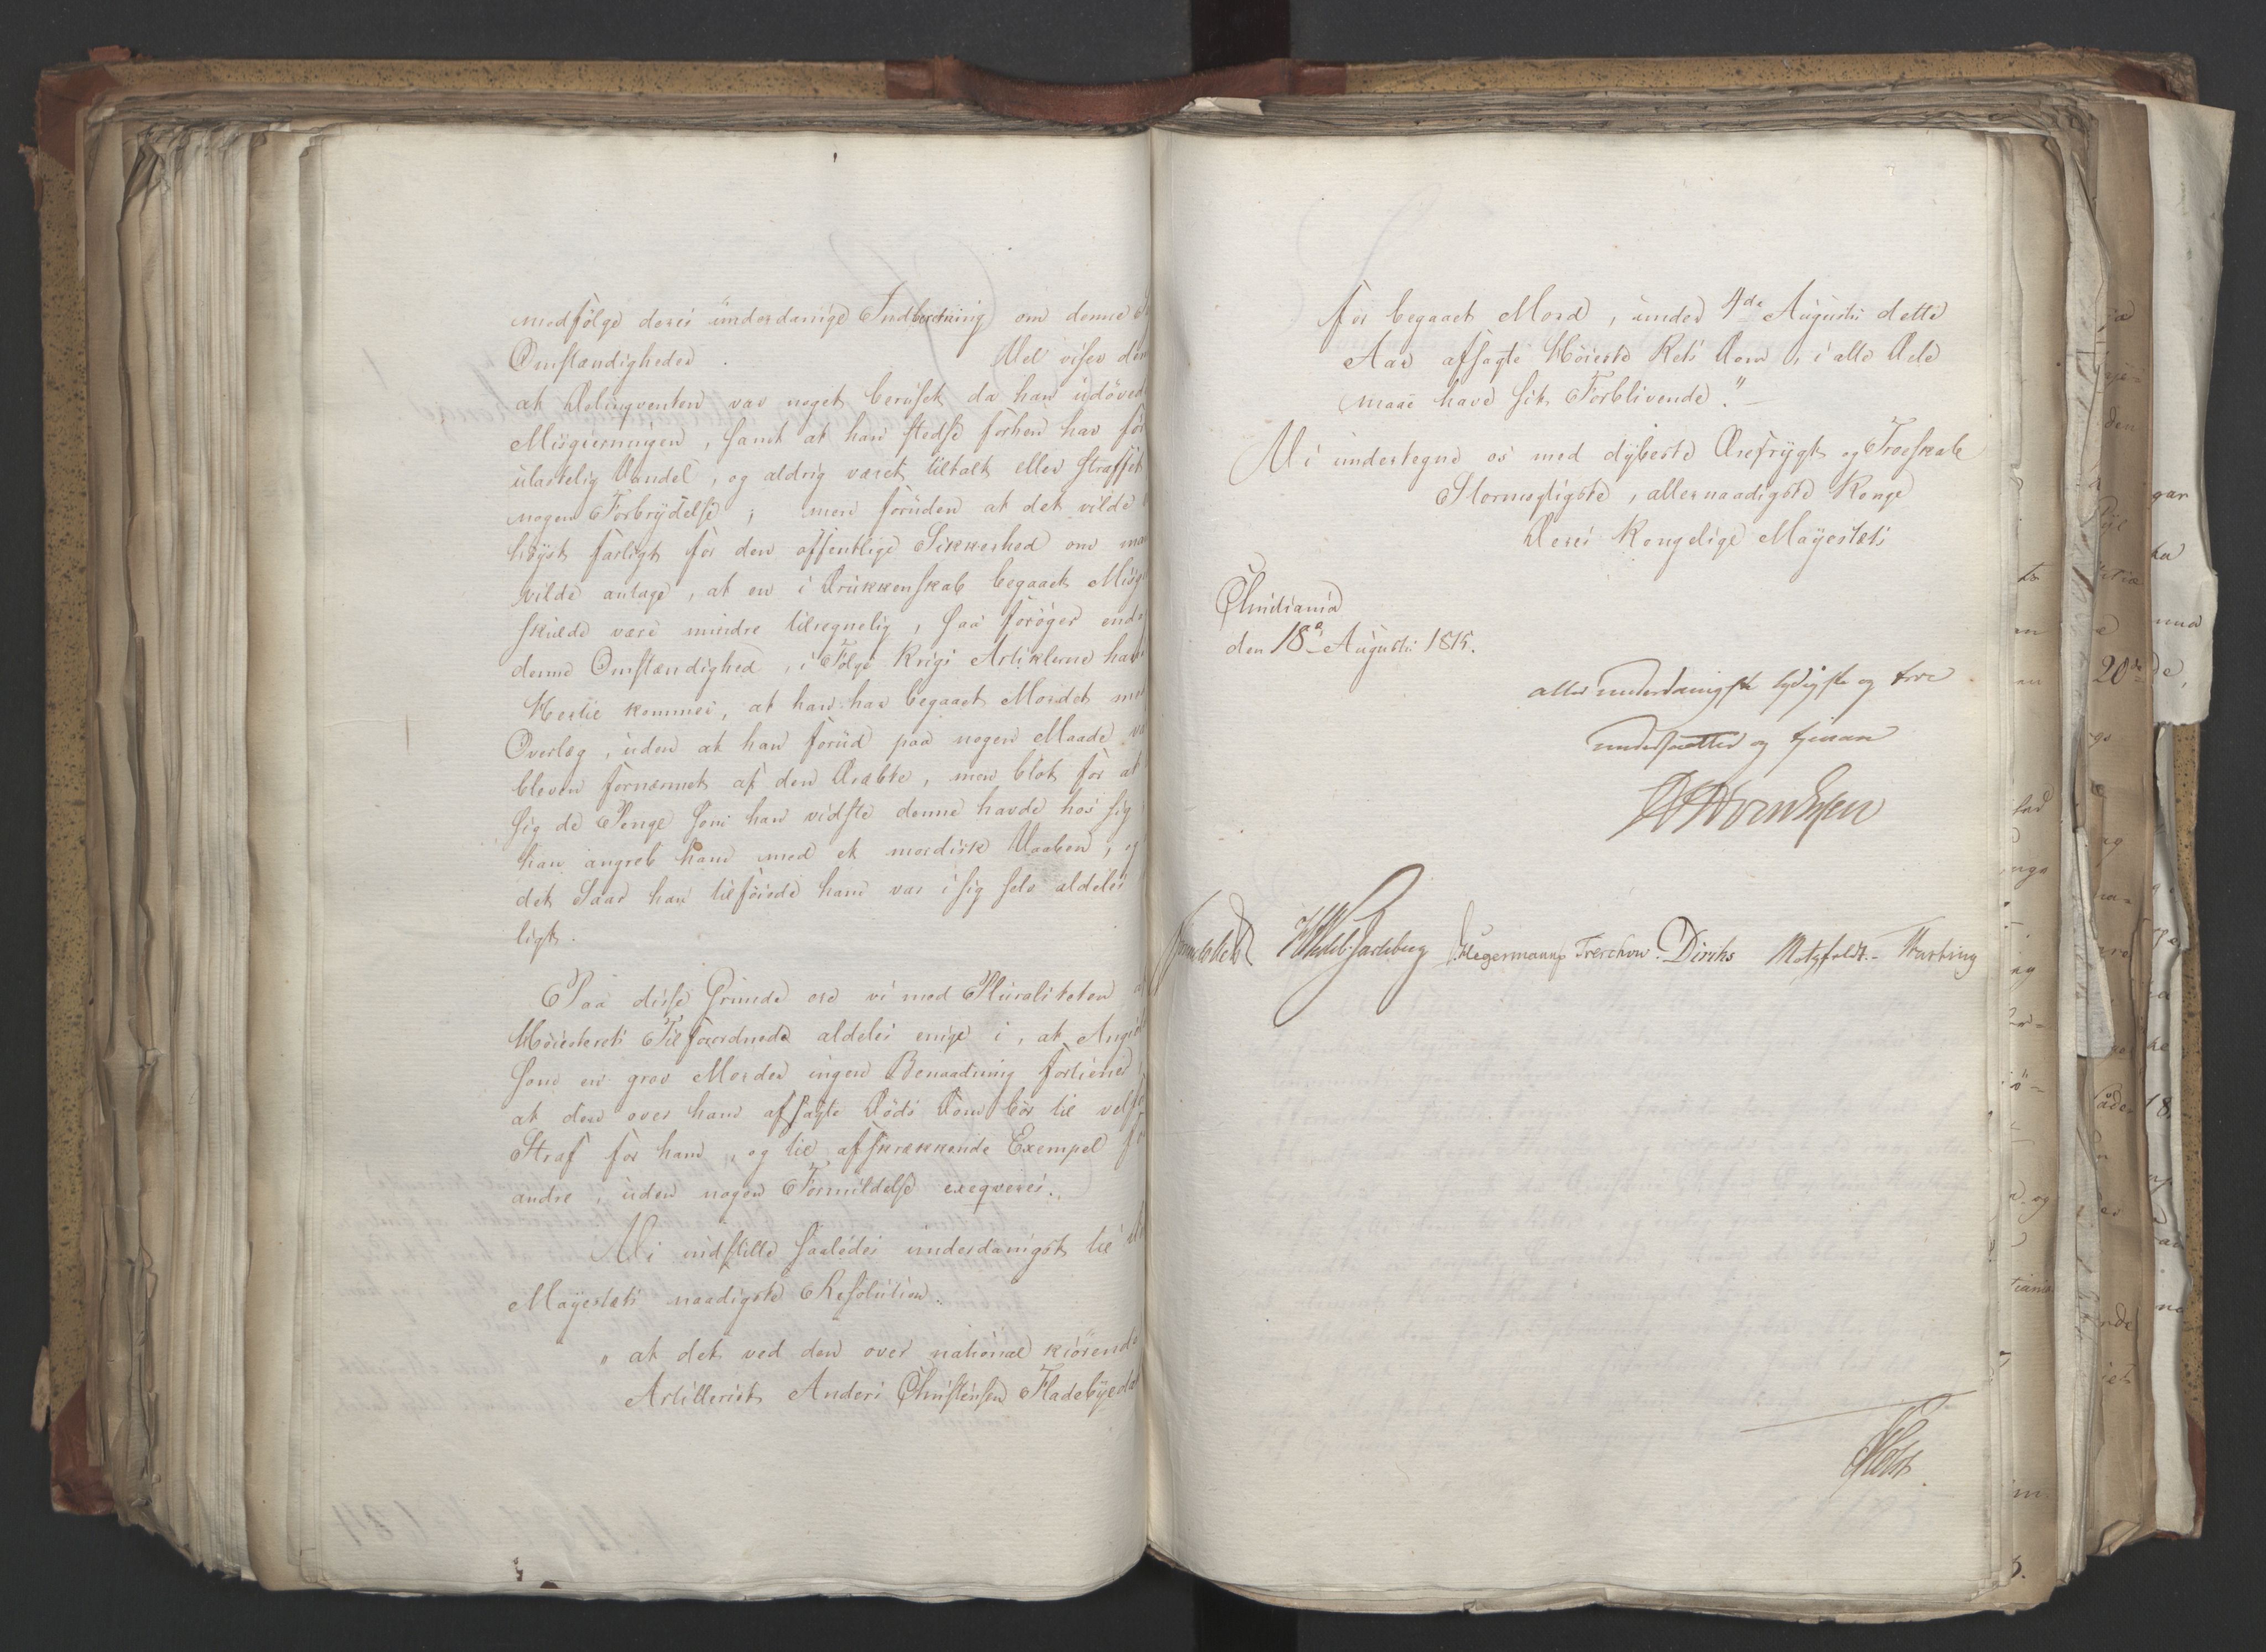 medfølge deres underdanige Indberetning om denne
Omstændigheder. Vel viser den
at Delinqventen var noget beruset da han udøved
Misgierningen, samt at han stedse forhen har før
ulastelig Vandel, og aldrig været tiltalt eller straffet
nogen Forbrydelse; men foruden at det vilde
høyst farligt for den offentlige Sikkerhed om man
vilde antage, at en i Drukkenskab begaaet Misg
skulde være mindre tilregnelig, saa forøger end
denne Omstændighed, i Følge Krigs Artiklerne hans
Hertil kommer, at han har begaaet Mordet med
Overlæg, uden at han forud paa nogen Maade va
bleven fornærmet af den Dræbte, men blot for at
sig de Penge som han vidste denne havde hos sig
han angreb ham med et mordisk Vaaben, og
det Saar han tilføiede ham var i sig selv aldeles
ligt.
Paa disse Grunde ere vi med Pluraliteten
Høiesterets Tilforordnede aldeles enige i, at Angi
som en grov Morder ingen Benaadning fortiener
at den over ham afsagte Døds Dom bør til velf
Straf for ham, og til afskrækkende Exempel for
andre, uden nogen Formildelse exeqveres.
Vi indstille saaledes underdanigst til
Mayestæts naadigste Resolution.
"at det ved den over national kiørende
Artillerist Anders Christensen Fladebye
for begaaet Mord, under 4de Augusti dette
Aar afsagte Høieste Rets Dom, i alle Dele
maae have sit Forblivende."
Vi undertegne os med dybeste Ærefrygt og Troeskab
Stormægtigste, allernaadigste Konge
Deres Kongelige Mayestæts
Christiania
den 18d Augusti 1815.
allerunderdanigste lydigste og troe
undersaatter og tjenere
Sommerhielm HWedelJarlsberg Hegermann Treschow. Diriks Motzfeldt. Hasting
Holst.